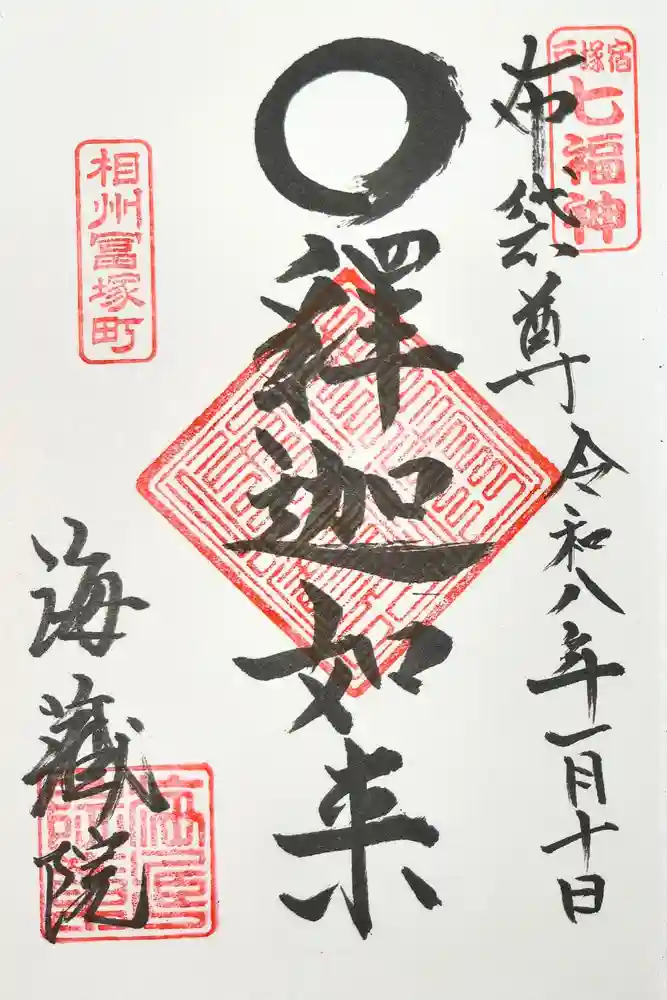 戸塚宿
七福神
布袋尊
令和八年一月十日
釋迦如来
相州冨塚町
海藏院